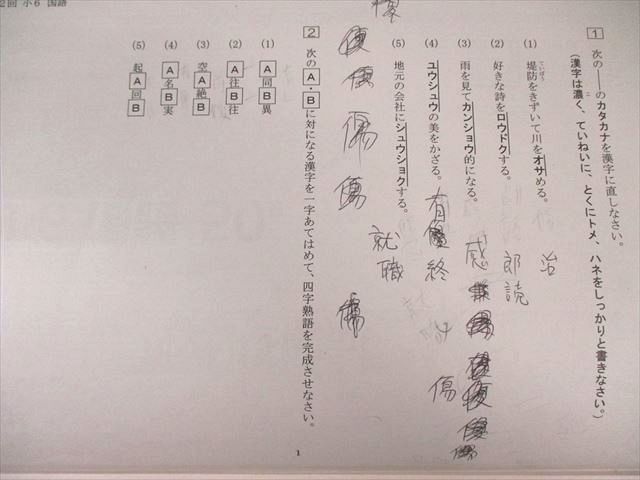 2回 小6 国語
1 次の――のカタカナを漢字に直しなさい。
(漢字は濃く、ていねいに、とくにトメ、ハネをしっかりと書きなさい。)
(1) 堤防をきずいて川をオサめる。
ていぼう
治
(2) 好きな詩をロウドクする。
郎読
(3) 雨を見てカンショウ的になる。
感
傷
(4) ユウシュウの美をかざる。
有 終
(5) 地元の会社にシュウショクする。
就職
2 次のA・Bに対になる漢字を一字あてはめて、四字熟語を完成させなさい。
(1) A同B異
(2) A往B往
(3) 空A絶B
(4) A名B実
(5) 起A回B
1